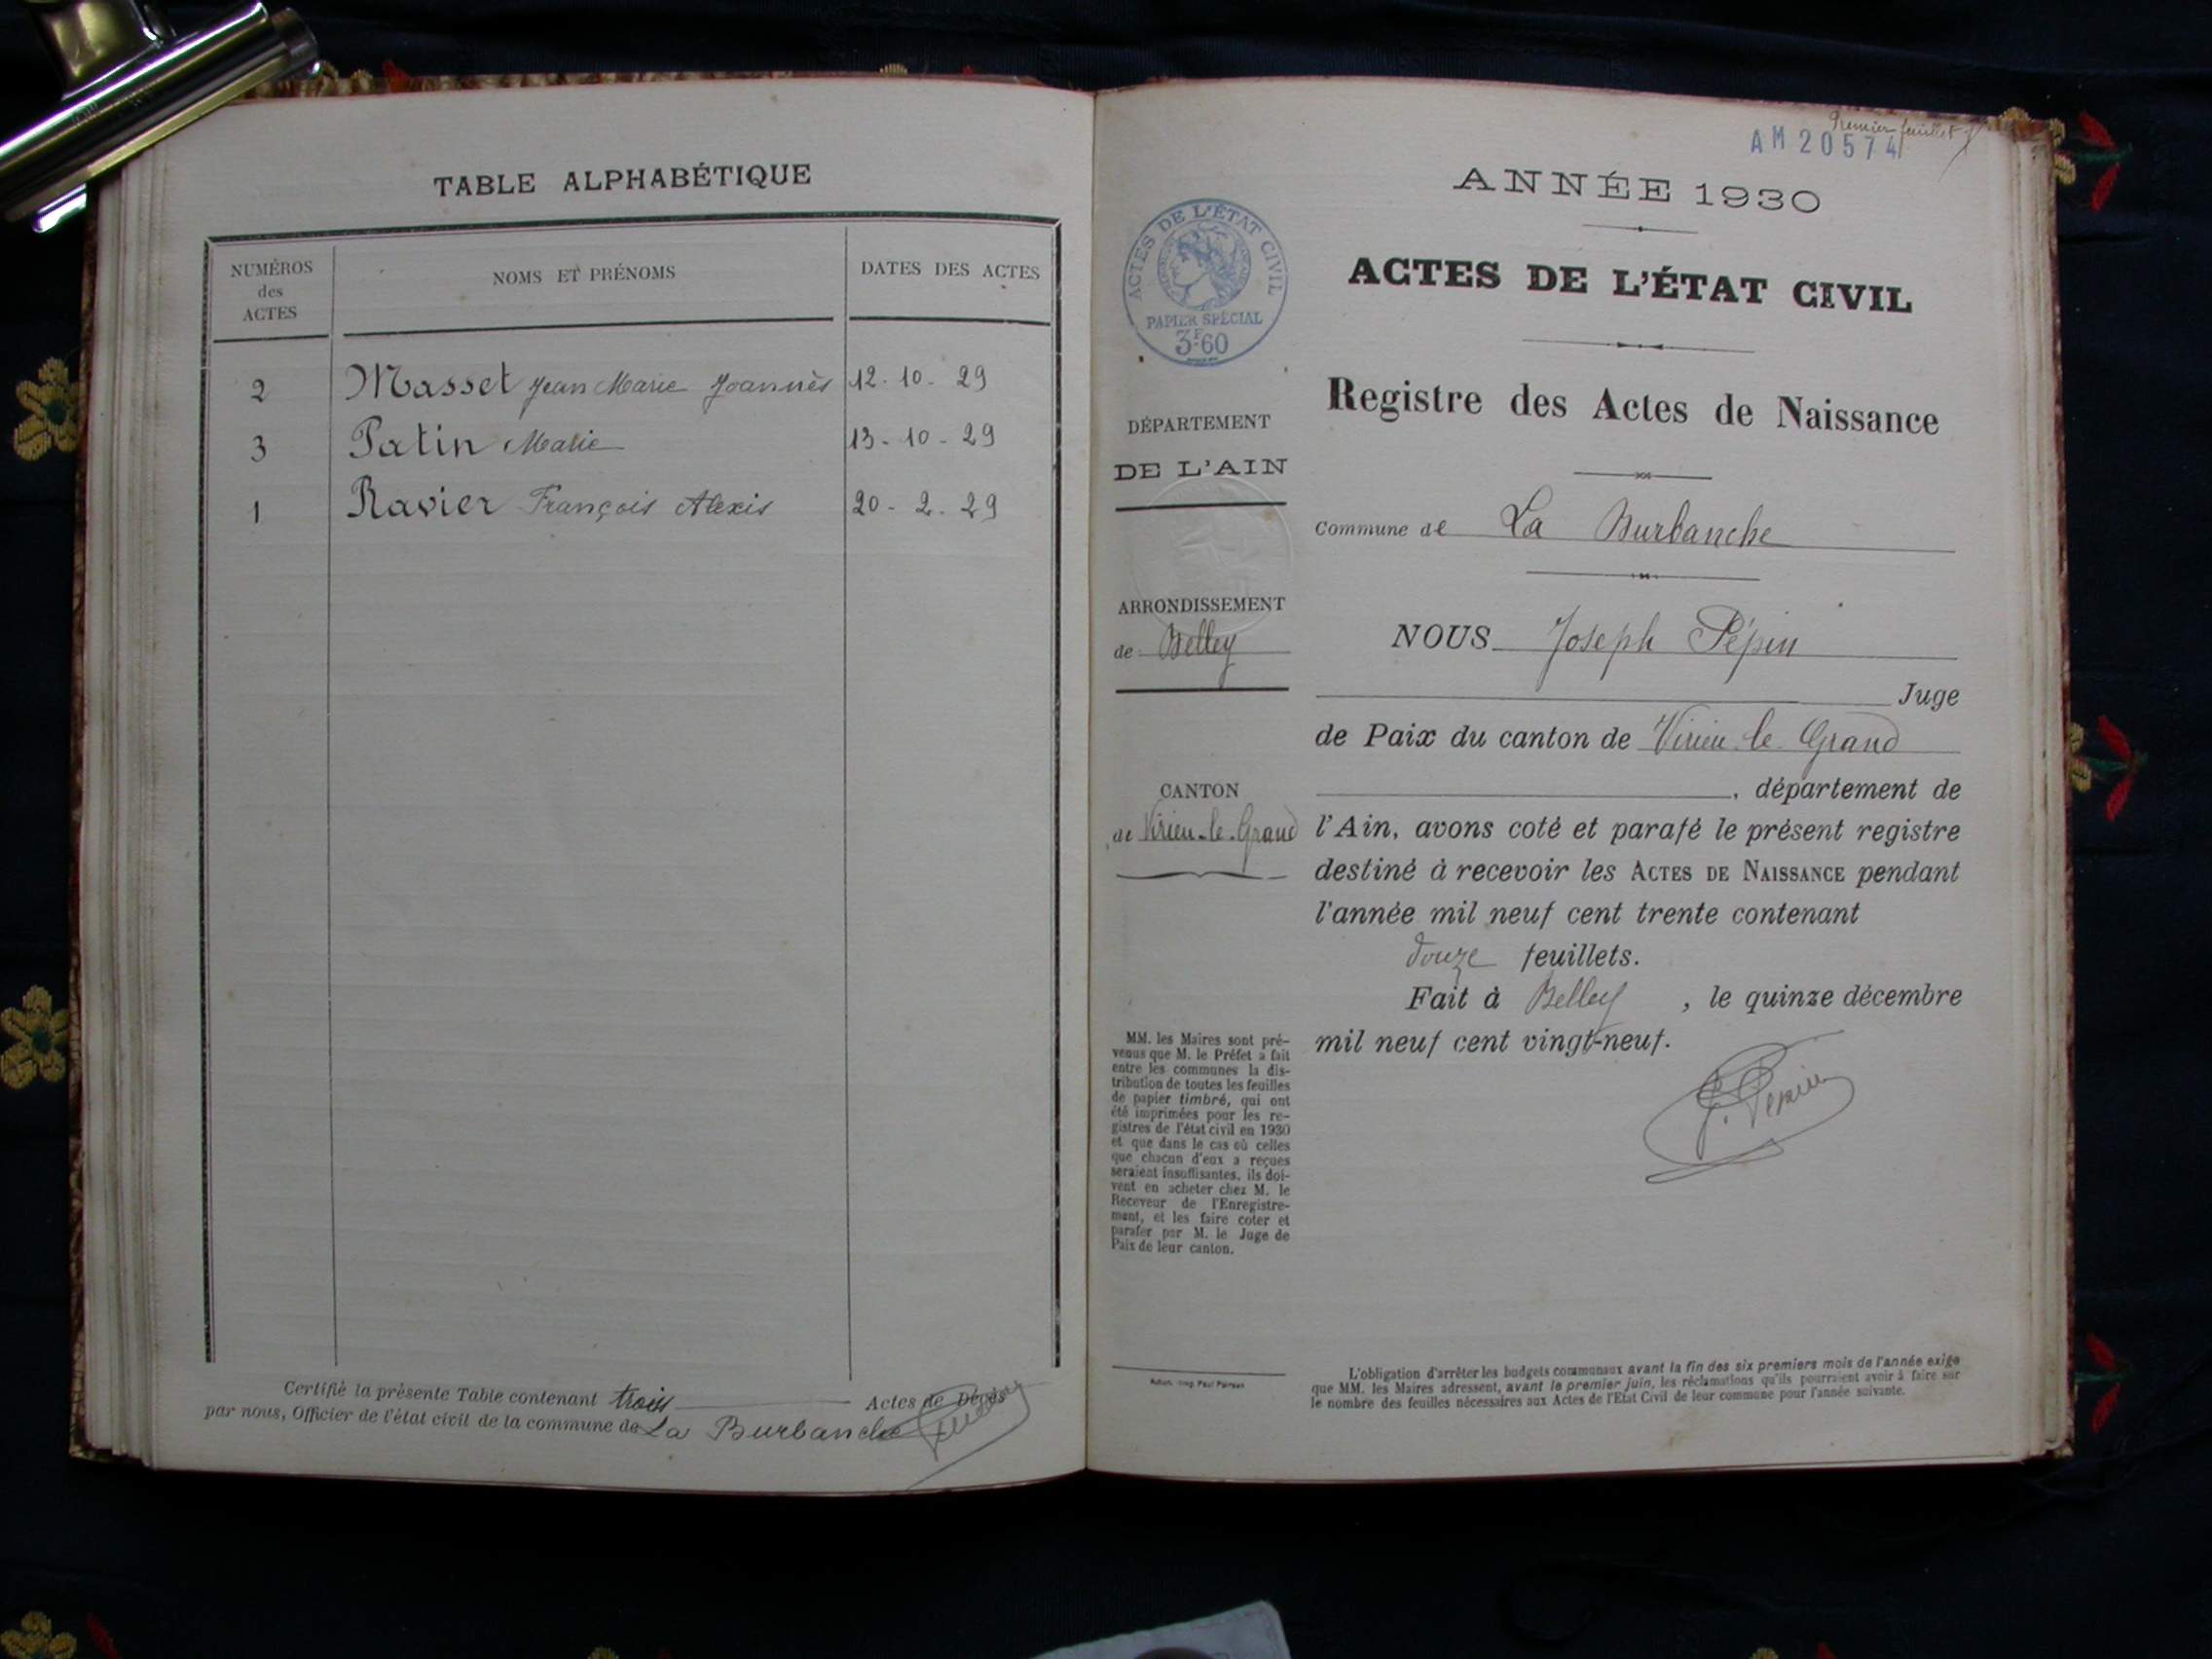 TABLE ALPHABÉTIQUE
NUMÉROS
des
ACTES
NOMS ET PRÉNOMS
DATES DES ACTES
2 Masset Jean Marie Joannès 12. 10. 29
3 Patin Marie 13. 10. 29
1 Ravier François Alexis 20. 2. 29
Certifié la présente Table contenant trois Actes de Décès
par nous, Officier de l'état civil de la commune de La Burbanche
Premier feuillet
AM 20574
ANNÉE 1930
ACTES DE L'ÉTAT CIVIL
PAPIER SPÉCIAL
3F.60
ACTES DE L'ÉTAT CIVIL
Registre des Actes de Naissance
DÉPARTEMENT
DE L'AIN
Commune de La Burbanche
ARRONDISSEMENT
de Belley
NOUS Joseph Pépin
Juge
de Paix du canton de Virieu-le-Grand
, département de
CANTON
de Virieu-le-Grand
l'Ain, avons coté et parafé le présent registre
destiné à recevoir les ACTES DE NAISSANCE pendant
l'année mil neuf cent trente contenant
douze feuillets.
Fait à Belley , le quinze décembre
mil neuf cent vingt-neuf.
J. Pépin
MM. les Maires sont pré-
venus que M. le Préfet a fait
entre les communes la dis-
tribution de toutes les feuilles
de papier timbré, qui ont
été imprimées pour les re-
gistres de l'état civil en 1930
et que dans le cas où celles
que chacun d'eux a reçues
seraient insuffisantes, ils doi-
vent en acheter chez M. le
Receveur de l'Enregistre-
ment, et les faire coter et
parafer par M. le Juge de
Paix de leur canton.
L'obligation d'arrêter les budgets communaux avant la fin des six premiers mois de l'année exige
que MM. les Maires adressent, avant le premier juin, les réclamations qu'ils pourraient avoir à faire sur
le nombre des feuilles nécessaires aux Actes de l'Etat Civil de leur commune pour l'année suivante.